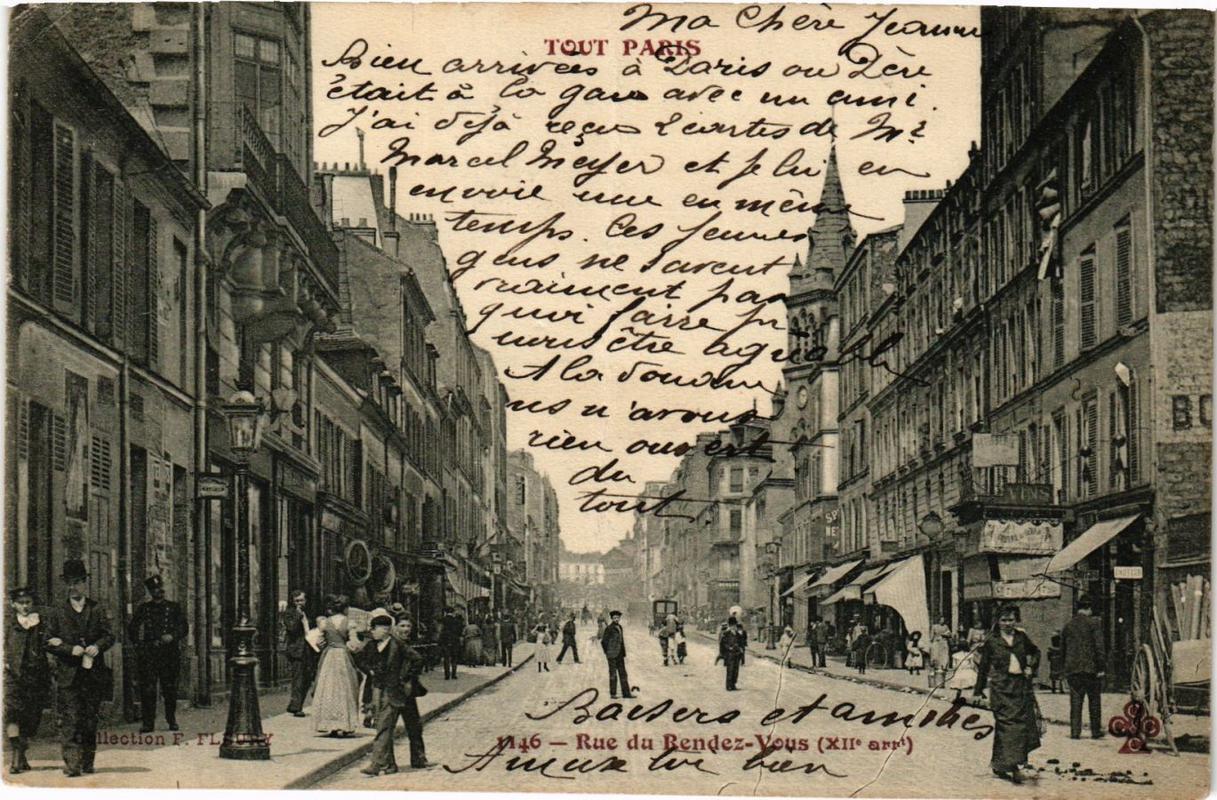 Ma Chère Jeanne
TOUT PARIS
Bien arrivées à Paris ou Père
était à la gare avec un ami.
J'ai déjà reçus 2 cartes de Mr
Marcel Meyer et je lui en
envoie une en même
temps. Ces jeunes
gens ne savent
vraiment pas
quoi faire pr
nous être agréable
A la douane
ns n'avons
rien ouvert
du
tout.
VINS
Baisers et amitiés
Collection F. FLEURY
1146 — Rue du Rendez-Vous (XIIe arrt)